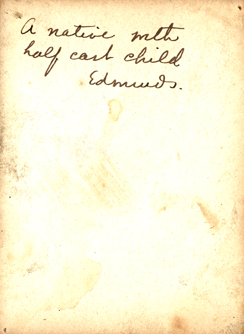 A native with
half cast child
Edmunds.